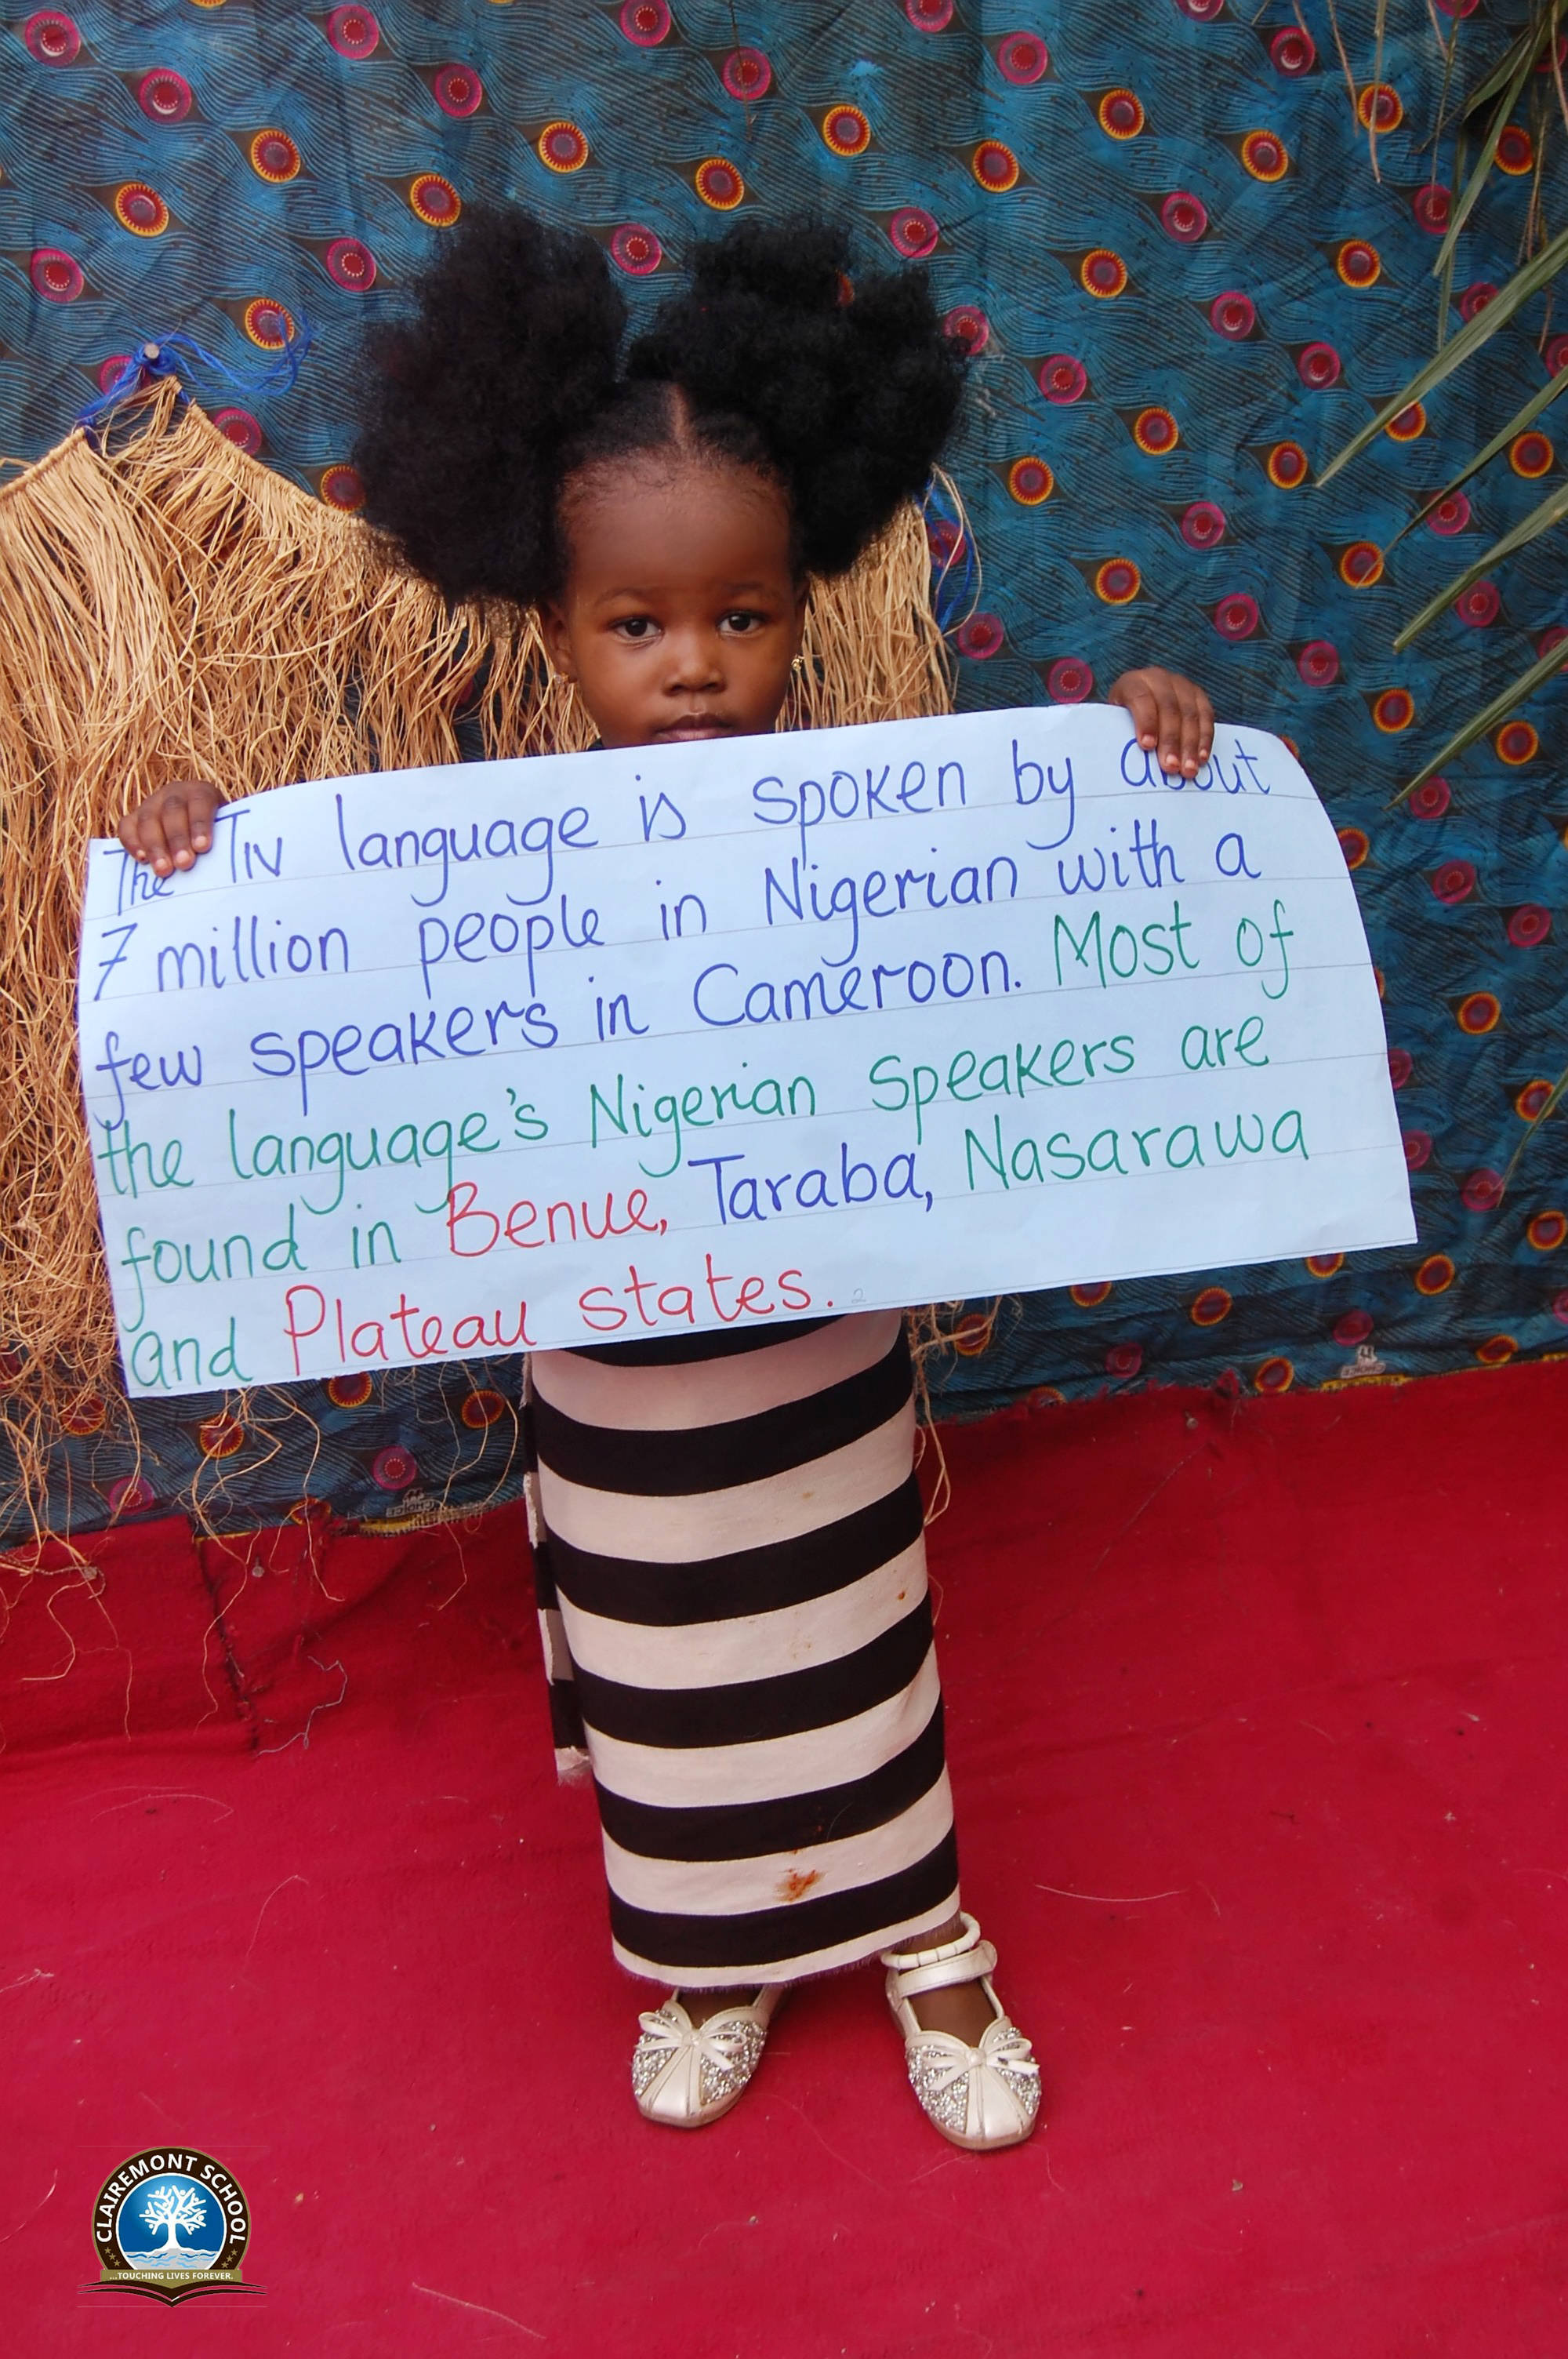 The Tiv language is spoken by about
7 million people in Nigerian with a
few speakers in Cameroon. Most of
the language's Nigerian Speakers are
found in Benue, Taraba, Nasarawa
and Plateau states.
CLAIREMONT SCHOOL
...TOUCHING LIVES FOREVER.